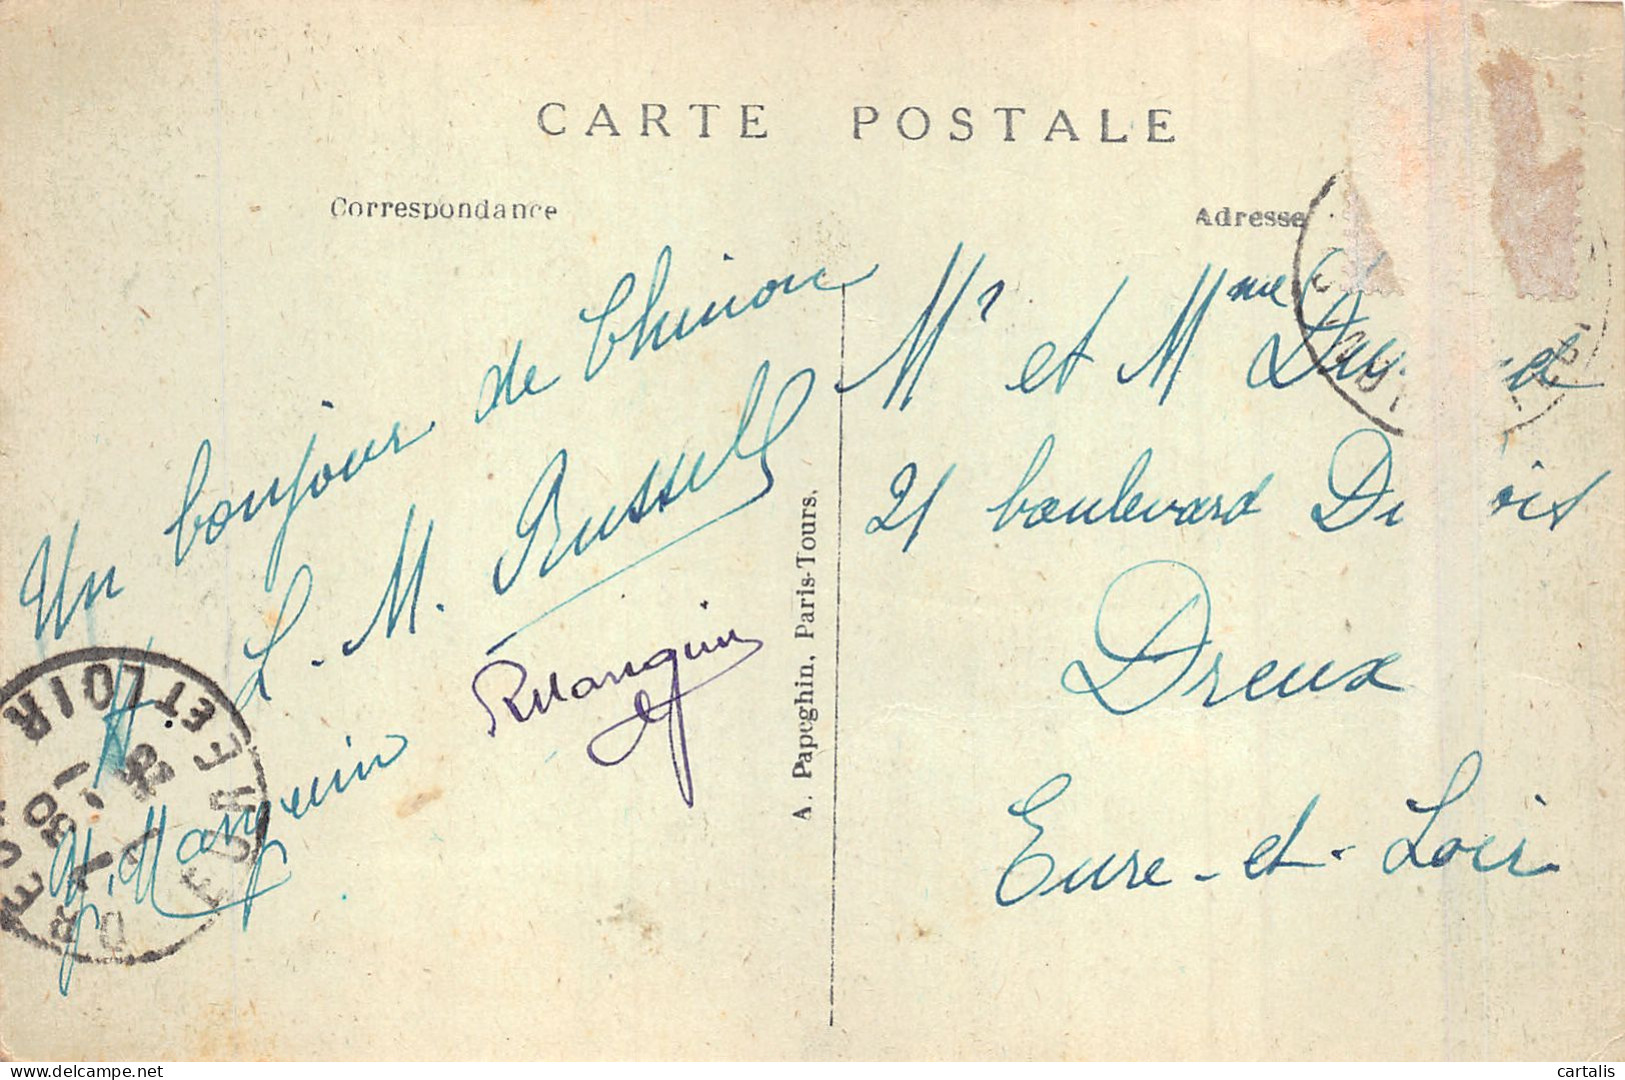 CARTE POSTALE
Correspondance
Adresse
Un bonjour de Chinon
A. L. M. Russell
Manguin
Manguin
A. Papeghin, Paris-Tours.
Mr et Mme
21 boulevard
Dreux
Eure-et-Loir
DREUX
EURE ET LOIR
1 30
delcampe.net
cartalis